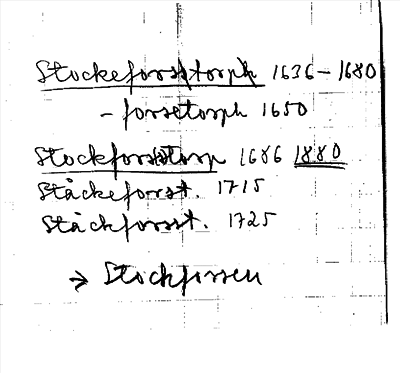 Stockeforsstorph 1636-1680
- forsetorph 1650
Stockforsstorp 1686 1880
Ståckeforst. 1715
Ståckforsst. 1725
→ Stockforsen